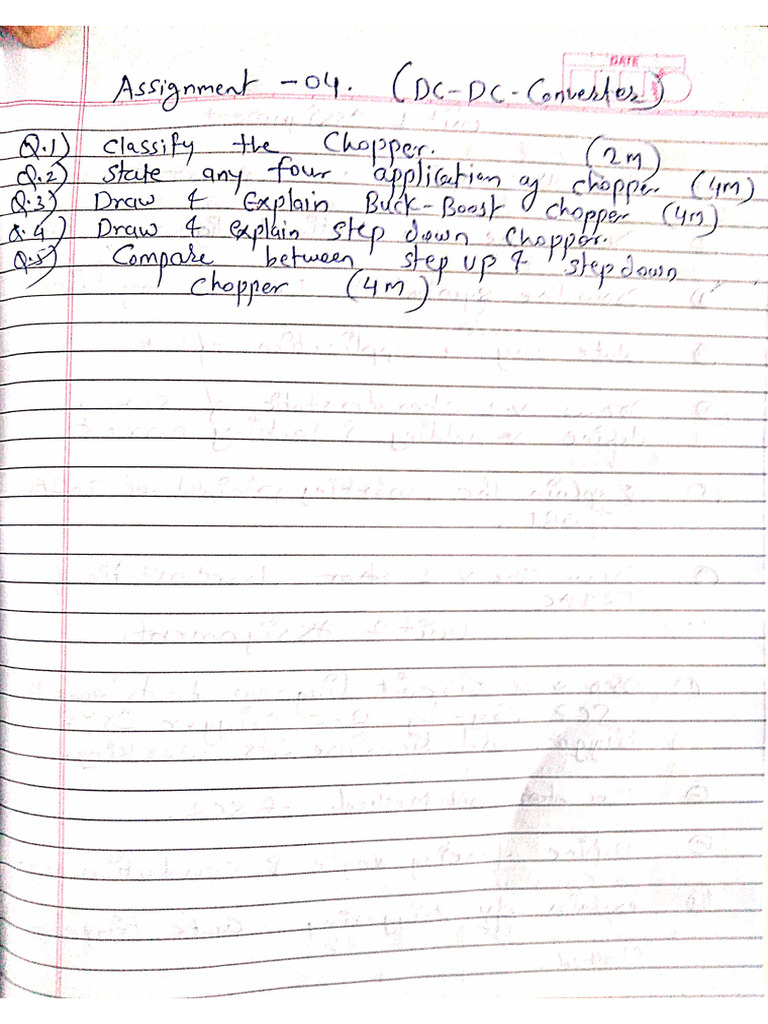 DATE
Assignment - 04. (DC-DC-Converter)
Q.1) Classify the Chopper. (2m)
Q.2) State any four application of chopper (4m)
Q.3) Draw & Explain Buck-Boost chopper (4m)
Q.4) Draw & explain step down chopper.
Q.5) Compare between step up & step down
chopper (4m)